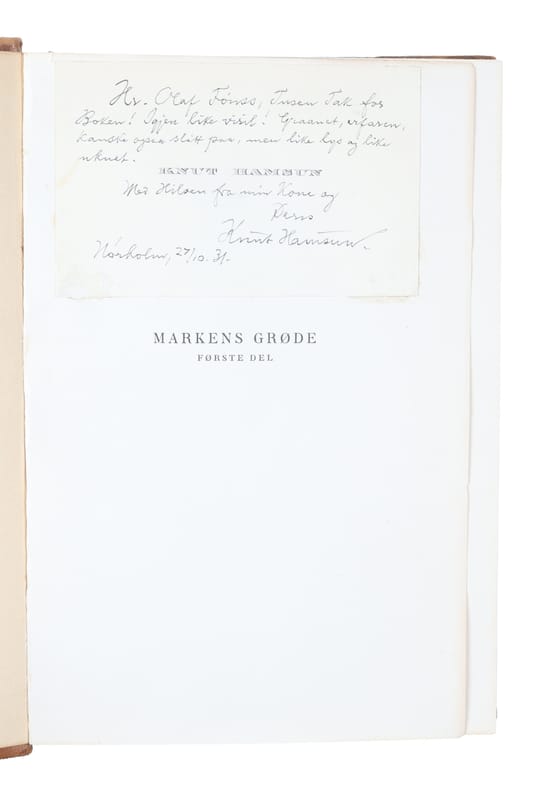 Hr. Olaf Fønss, Tusen Tak for
Boken! Igjen like visil! Graanet, erfaren,
kanske ogsaa slitt paa, men like lys og like
ukuet.
KNUT HAMSUN
Med Hilsen fra min Kone og
Deres
Knut Hamsun.
Nørholm, 27/10. 31.
MARKENS GRØDE
FØRSTE DEL